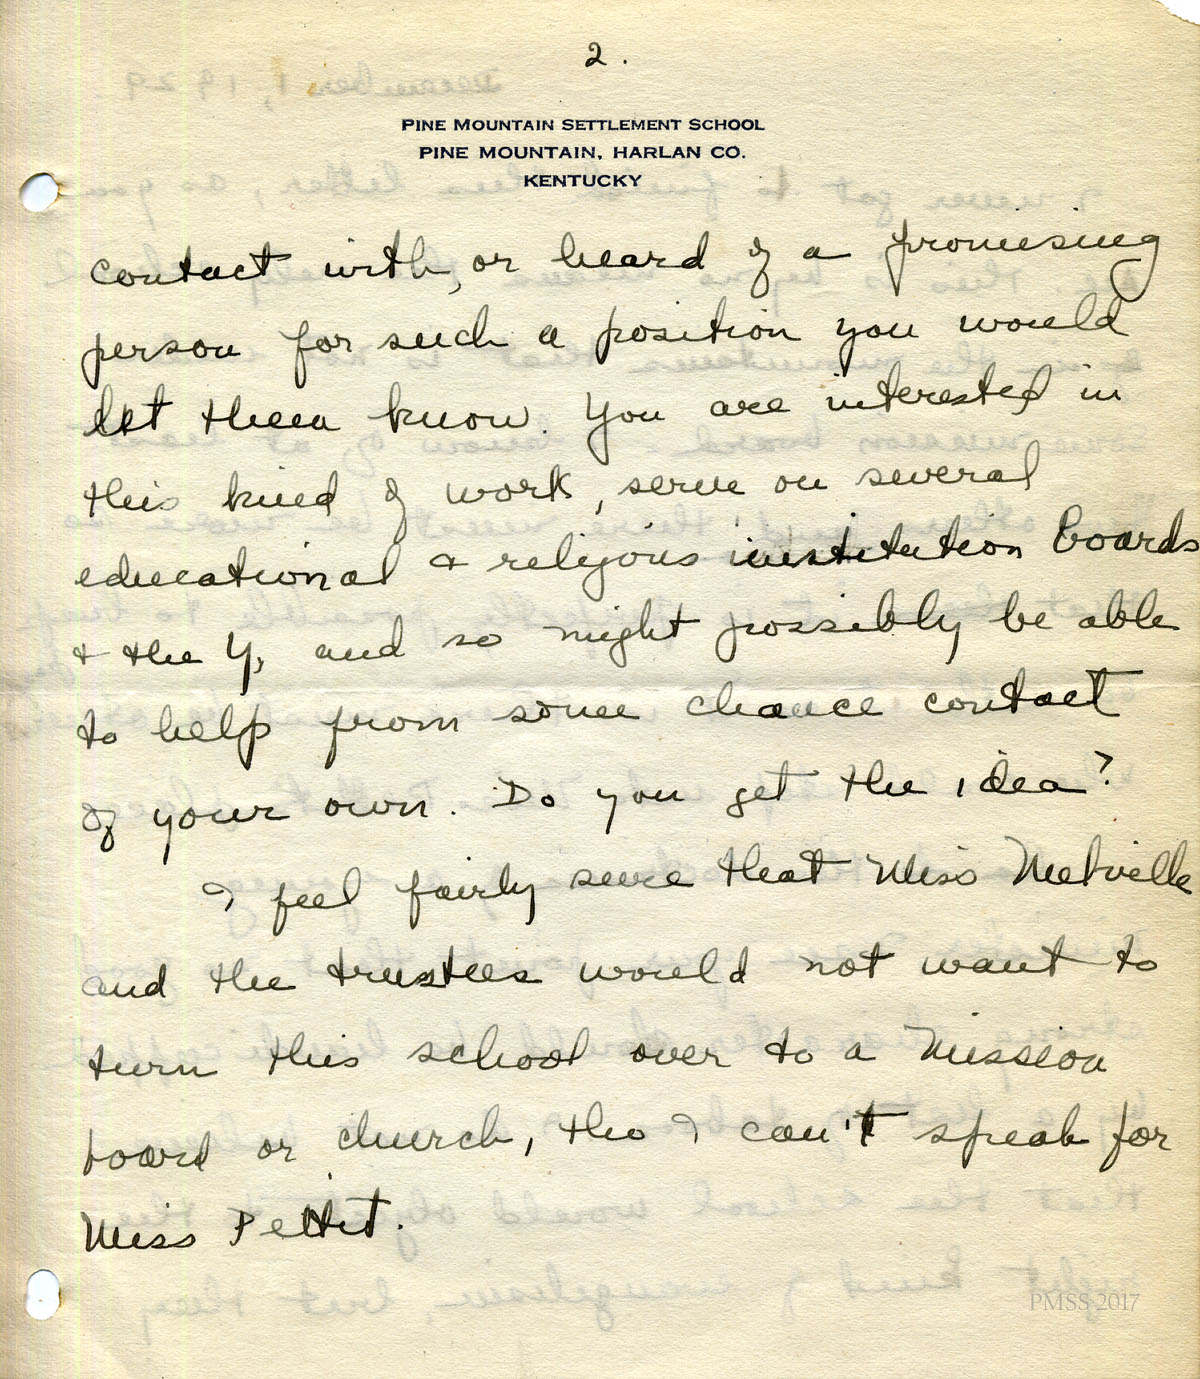 2.
PINE MOUNTAIN SETTLEMENT SCHOOL
PINE MOUNTAIN, HARLAN CO.
KENTUCKY
contact with, or heard of a promising
person for such a position you would
let them know. You are interested in
this kind of work, serve on several
educational & religious institution boards
& the Y, and so might possibly be able
to help from some chance contact
of your own. Do you get the idea?
I feel fairly sure that Miss Melville
and the trustees would not want to
turn this school over to a Mission
board or church, tho I can't speak for
Miss Pettit.
PMSS 2017